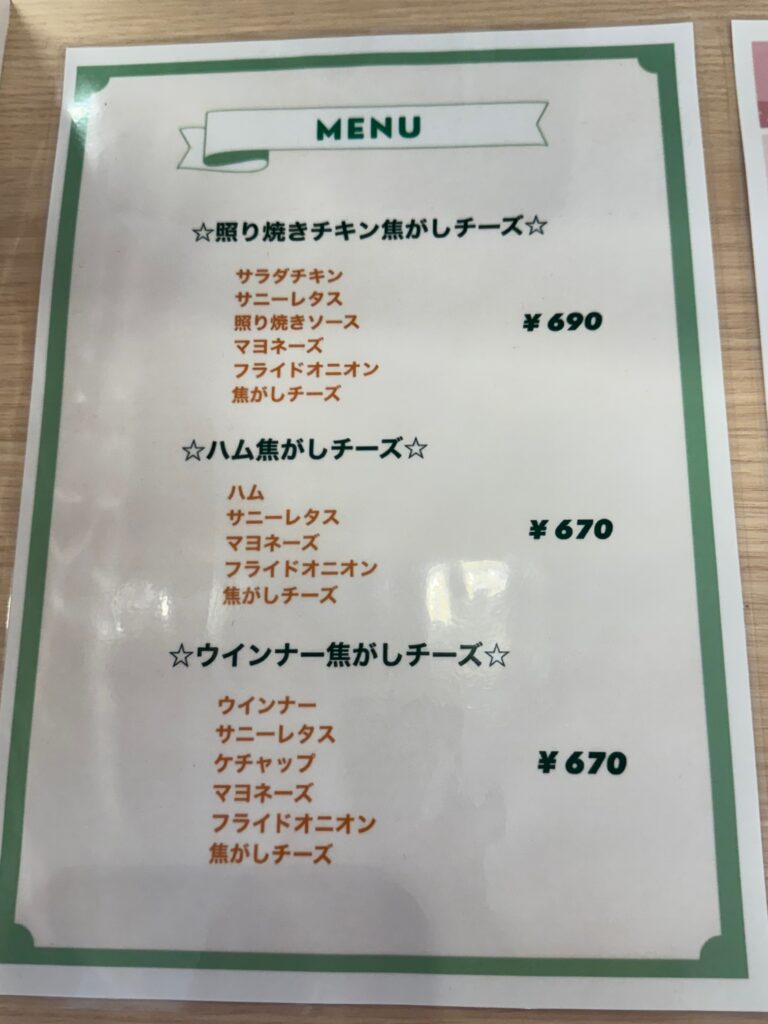 MENU
☆照り焼きチキン焦がしチーズ☆
サラダチキン
サニーレタス
照り焼きソース
マヨネーズ
フライドオニオン
焦がしチーズ
¥690
☆ハム焦がしチーズ☆
ハム
サニーレタス
マヨネーズ
フライドオニオン
焦がしチーズ
¥670
☆ウインナー焦がしチーズ☆
ウインナー
サニーレタス
ケチャップ
マヨネーズ
フライドオニオン
焦がしチーズ
¥670